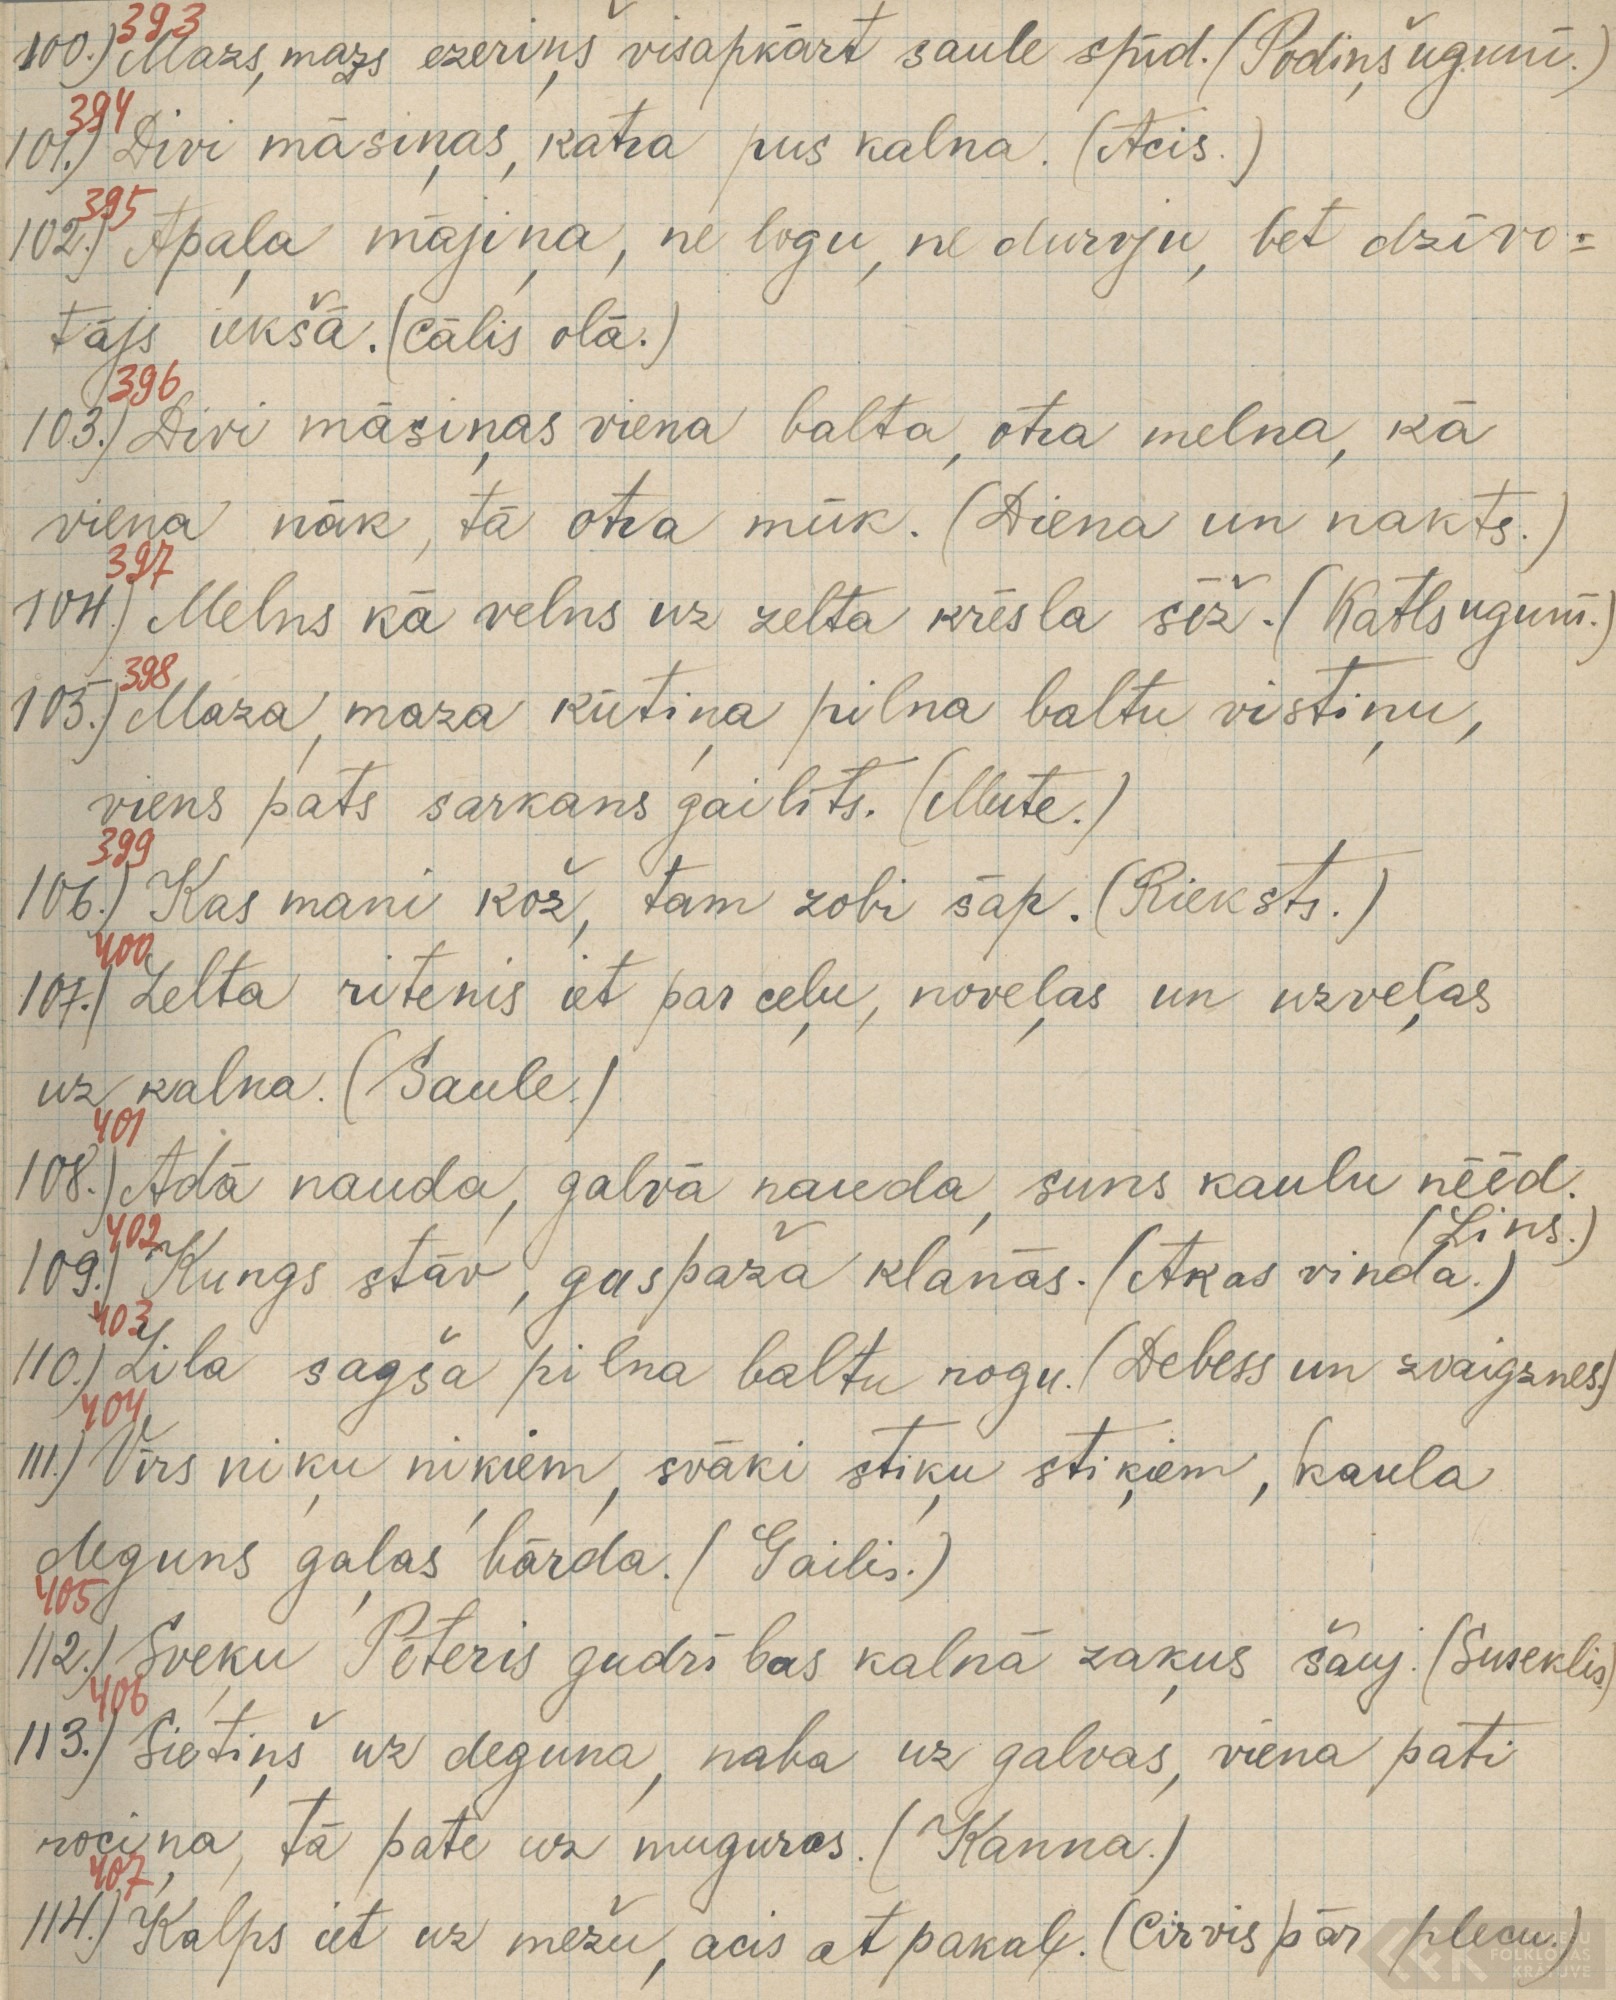 393
100.) Mazs, mazs ezeriņš visapkārt saule spīd. (Podiņš ugunī.)
394
101.) Divi māsiņas, katra pus kalna. (Acis.)
395
102.) Apaļa mājiņa, ne logu, ne durvju, bet dzīvo=
tājs iekšā. (Cālis olā.)
396
103.) Divi māsiņas viena balta, otra melna, kā
viena nāk, tā otra mūk. (Diena un nakts.)
397
104.) Melns kā velns uz zelta krēsla sēž. (Katls ugunī.)
398
105.) Maza, maza kūtiņa pilna baltu vistiņu,
viens pats sarkans gailīts. (Mute.)
399
106.) Kas mani kož, tam zobi sāp. (Rieksts.)
400
107.) Zelta ritenis iet par ceļu, noveļas un uzveļas
uz kalna. (Saule.)
401
108.) Ādā nauda, galvā nauda, suns kaulu neēd.
(Lins.)
402
109.) Kungs stāv, gaspaža klanās. (Akas vinda.)
403
110.) Zila sagša pilna baltu rogu. (Debess un zvaigznes.)
404
111.) Vīrs niķu niķiem, svāki stiķu stiķiem, kaula
deguns gaļas bārda. (Gailis.)
405
112.) Sveķu Pēteris gudrības kalnā zaķus šauj. (Suseklis.)
406
113.) Sietiņš uz deguna, naba uz galvas, viena pati
rociņa, tā pate uz muguras. (Kanna.)
407
114.) Kalps iet uz mežu, acis atpakaļ. (Cirvis pār plecu.)
FOLKLORAS
KRĀTUVE